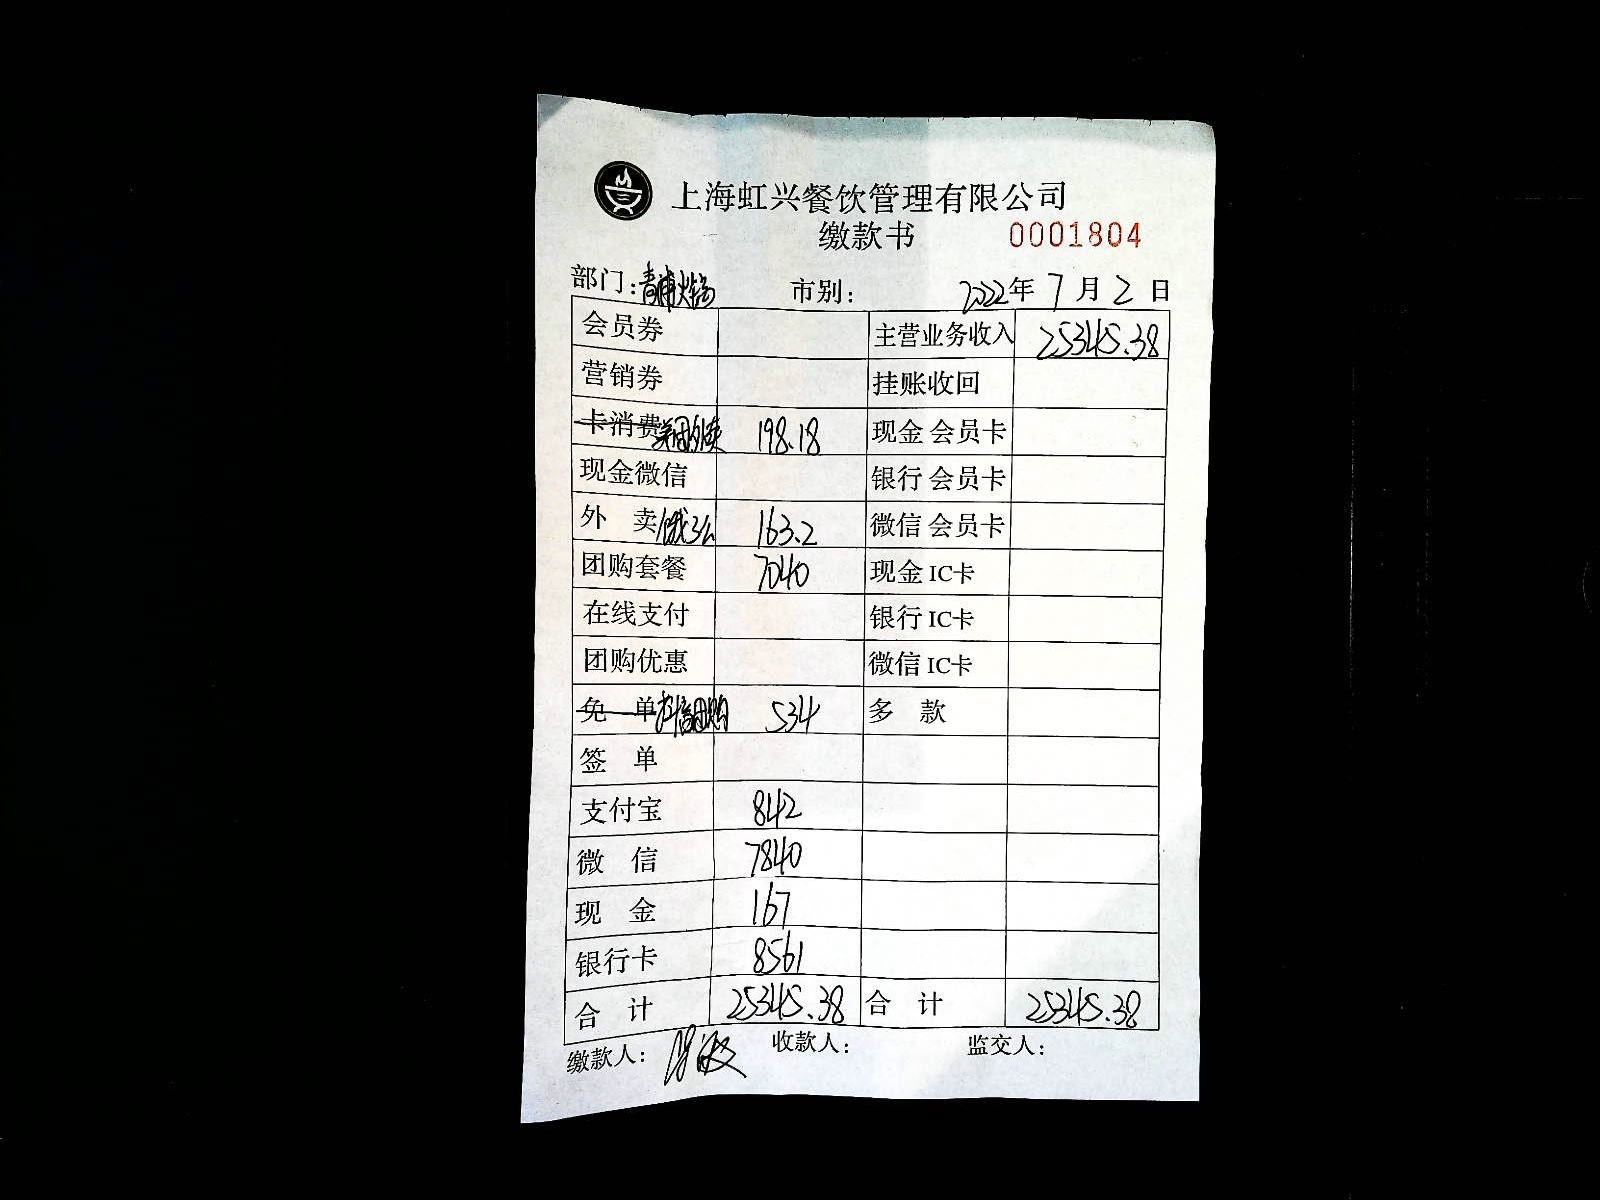 上海虹兴餐饮管理有限公司
缴款书 0001804
部门:青浦火锅 市别: 2022年7月2日
会员券 主营业务收入 25345.38
营销券 挂账收回
卡消费 美团外卖 198.18 现金 会员卡
现金微信 银行 会员卡
外 卖 饿了么 163.2 微信 会员卡
团购套餐 7040 现金 IC卡
在线支付 银行 IC卡
团购优惠 微信 IC卡
免 单 抖音团购 534 多 款
签 单
支付宝 842
微 信 7840
现 金 167
银行卡 8561
合 计 25345.38 合 计 25345.38
缴款人: 收款人: 监交人: